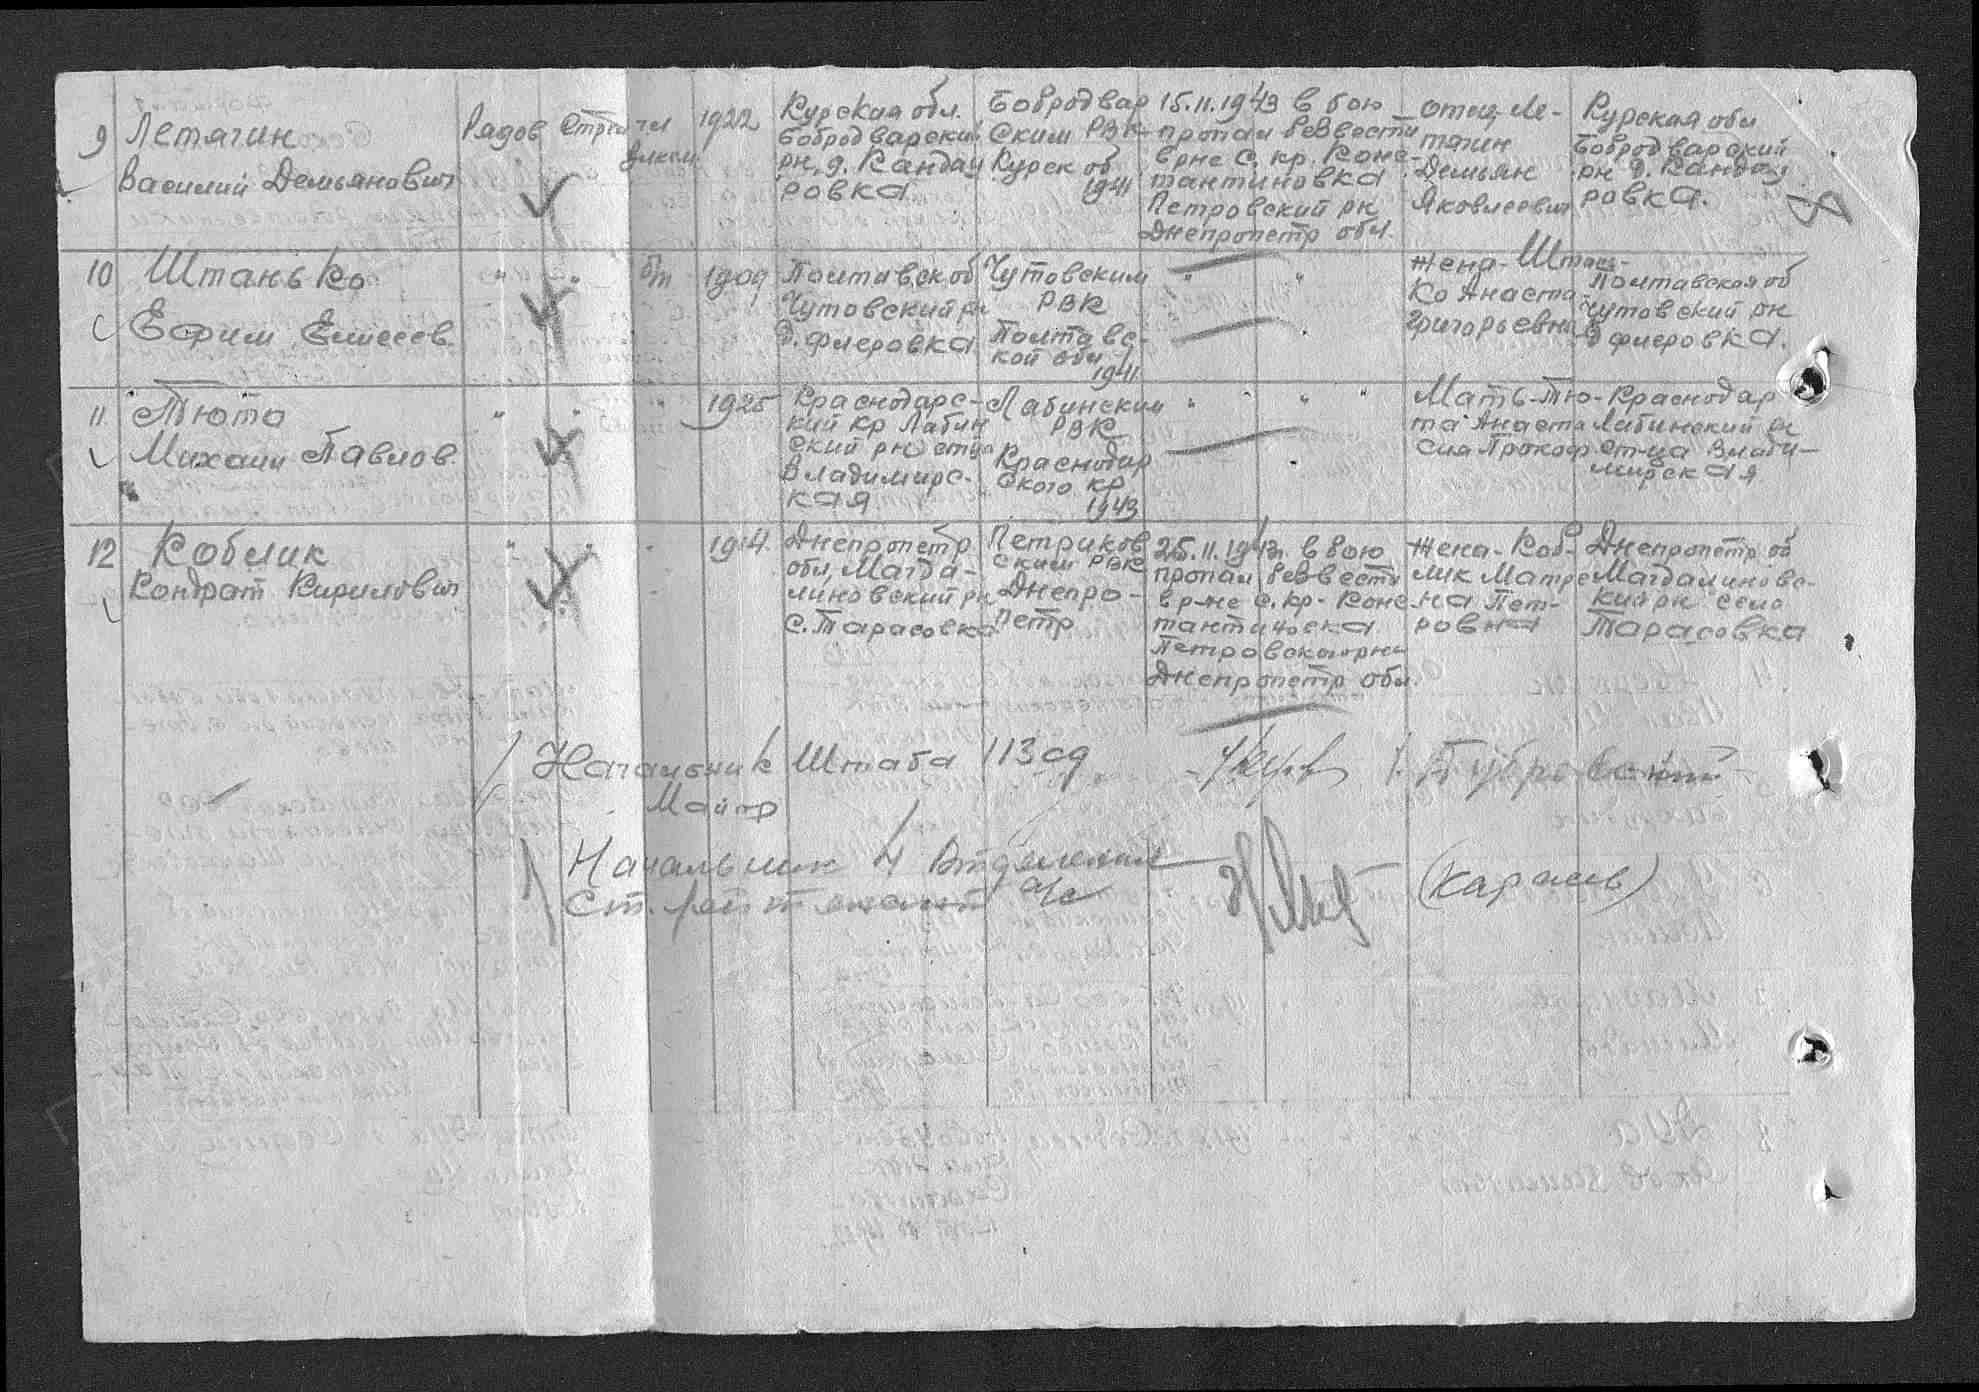 9
Летягин
Василий Демьянович
Рядов
Стрел
чл
влксм
1922
Курская обл.
Бобродварский
рн, д. Кандау
ровка
Бобродвар
ским РВК
Курск об
1941
15.11.1943 в бою
пропал без вести
в рне с. кр. Конс-
тантиновка
Петровский рн
Днепропетр обл.
отец Ле-
тягин
Демьян
Яковлевич
Курская обл
Бобродварский
рн д. Кандау
ровка.
10
Штанько
Ефим Елисеев.
" "
б/п
1909
Полтавск об
Чутовский рн
д. Флеровка
Чутовским
РВК
Полтавс-
кой обл
1941
" "
"
Жена-Штань-
ко Анаста
Григорьевна
Полтавская об
Чутовский рн
д Флеровка.
11
Тюта
Михаил Павлов.
" " "
1925
Краснодарс-
кий кр Лабин
ский рн стца
Владимирс-
кая
Лабинским
РВК
Краснодар
ского кр
1943
" " "
"
Мать-Тю-
та Анаста
сия Прокоф
Краснодар
Лабинский рн
ст-ца Влади-
мирская
12
Коблик
Кондрат Кирилович
" " "
1914.
Днепропетр
обл, Магда-
линовский рн
с. Тарасовка
Петриков
ским РВК
Днепро-
петр
25.11.1943г. в бою
пропал без вести
в р-не с. кр. Конс
тантиновка
Петровского рна
Днепропетр обл.
Жена-Коб-
лик Матре
на Пет-
ровна
Днепропетр об
Магдалиновс-
кий рн село
Тарасовка
Начальник Штаба 113 сд
Майор
Начальник 4 Отделения
Ст. лейтенант а/с
(Карасев)